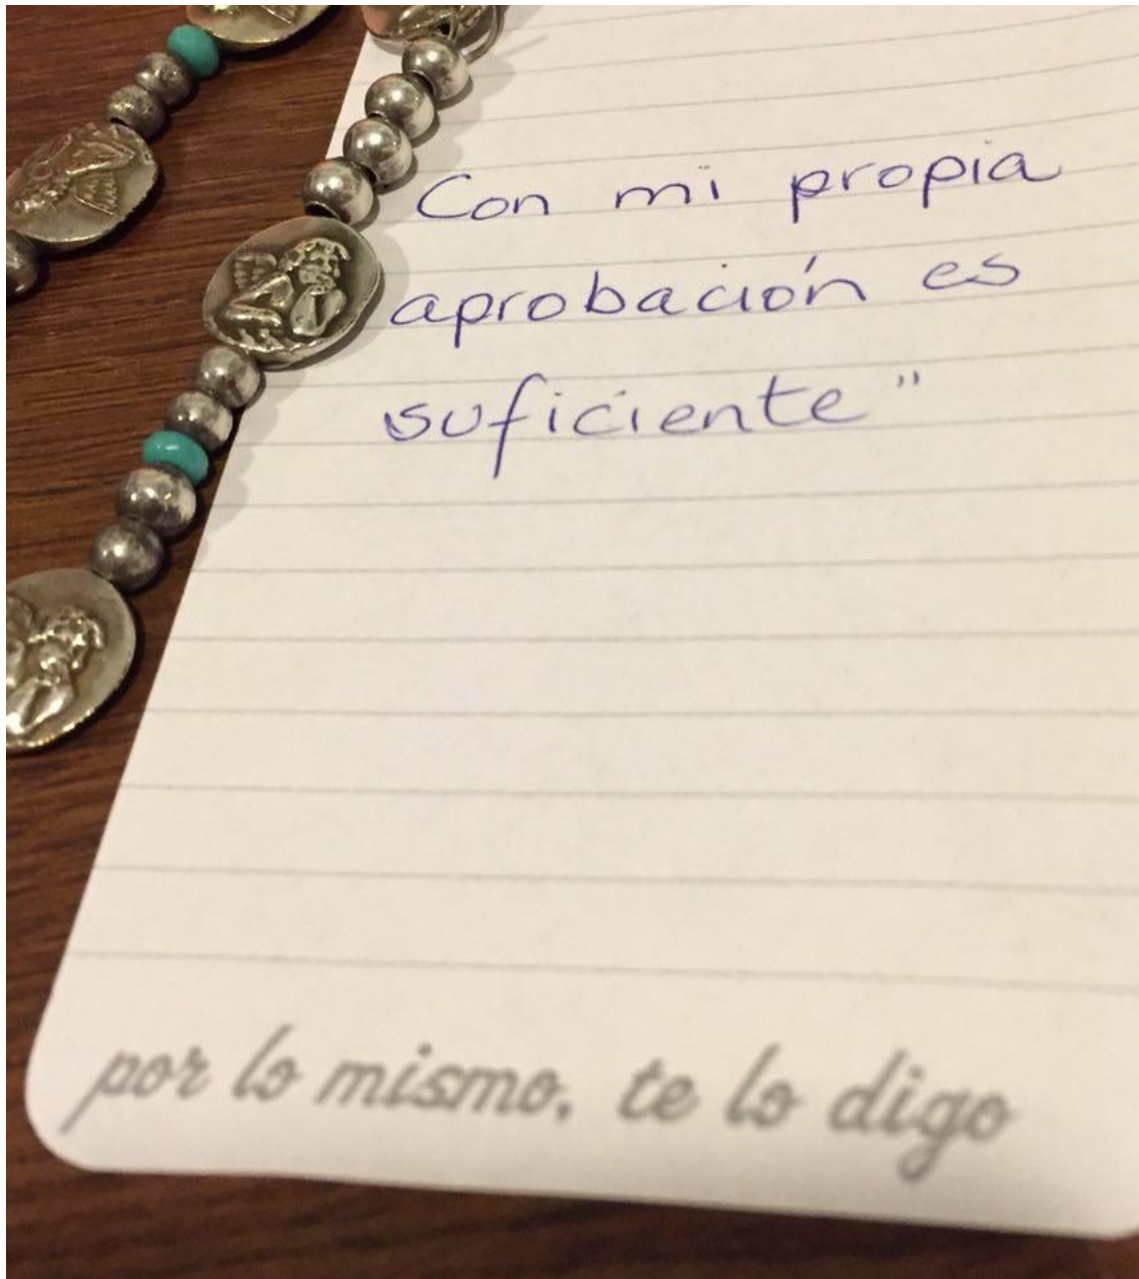 Con mi propia
aprobación es
suficiente"
por lo mismo, te lo digo